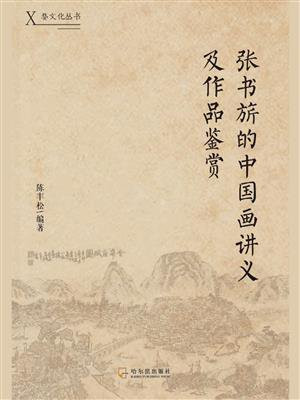 X 婺文化丛书
张书旂的中国画讲义
及作品鉴赏
陈丰松 编著
哈尔滨出版社
HARBIN PUBLISHING HOUSE